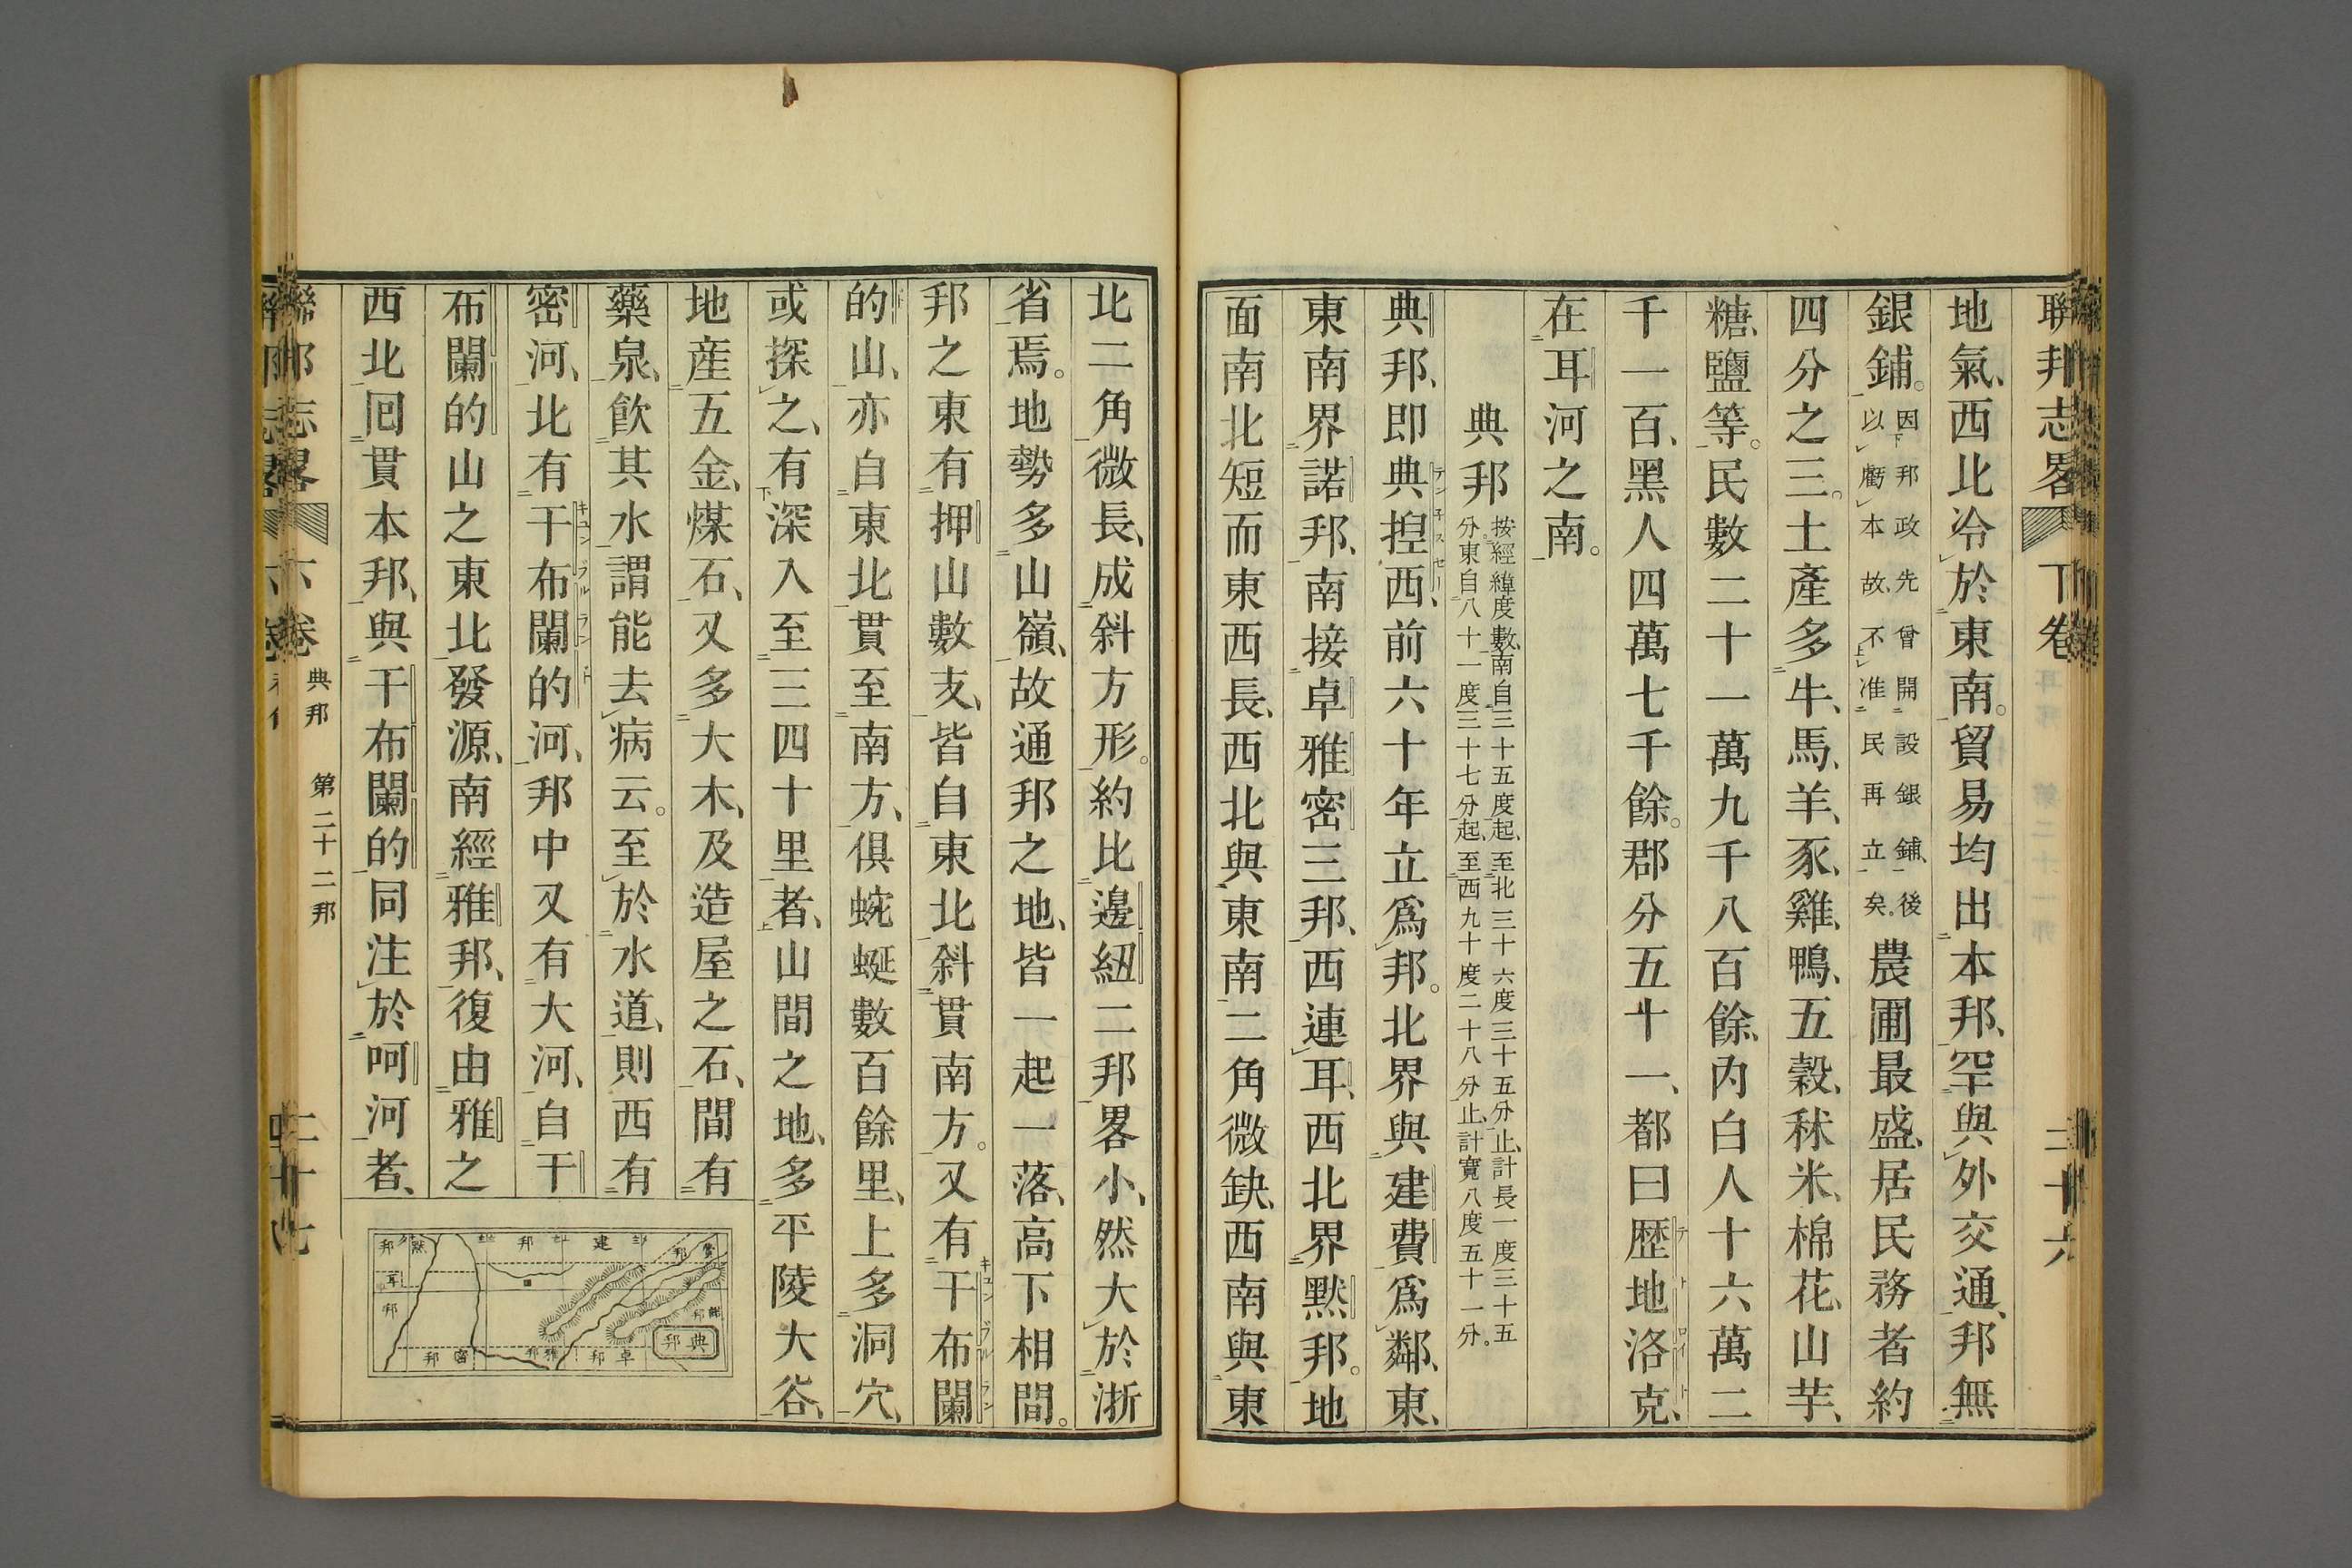 聯邦志畧 下卷 三十六
地氣、西北冷於東南。貿易均出本邦、罕與外交通、邦無
銀鋪。因邦政先曾開設銀鋪、後以虧本故、不准民再立矣。農圃最盛、居民務者約
四分之三。土產多牛、馬、羊、豕、雞、鴨、五穀、秫米、棉花、山芋、
糖、鹽等。民數二十一萬九千八百餘、內白人十六萬二
千一百、黑人四萬七千餘。郡分五十一、都曰歷地洛克、
在耳河之南。
典邦 按經緯度數、南自三十五度起、至北三十六度三十五分止、計長一度三十五分。東自八十一度三十七分起、至西九十度二十八分止、計寬八度五十一分。
典邦、即典揑西、前六十年立爲邦。北界與建費爲鄰、東、
東南界諾邦、南接卓雅密三邦、西連耳、西北界默邦。地
面南北短而東西長、西北與東南二角微缺、西南與東
北二角微長、成斜方形。約比邊紐二邦畧小、然大於浙
省焉。地勢多山嶺、故通邦之地、皆一起一落、高下相間。
邦之東有押山數支、皆自東北斜貫南方。又有干布闌
的山、亦自東北貫至南方、俱蜿蜒數百餘里、上多洞穴、
或探之、有深入至三四十里者、山間之地、多平陵大谷、
地產五金、煤石、又多大木、及造屋之石、間有
藥泉、飲其水謂能去病云。至於水道、則西有
密河、北有干布闌的河、邦中又有大河、自干
布闌的山之東北發源、南經雅邦、復由雅之
西北囘貫本邦、與干布闌的同注於呵河者、
典邦
建邦
耳邦
密邦
雅邦
卓邦
聯邦志畧 下卷 典邦 第二十二邦 三十七